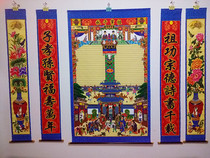 祖功宗德詩書千載
子孝孫賢福壽萬年